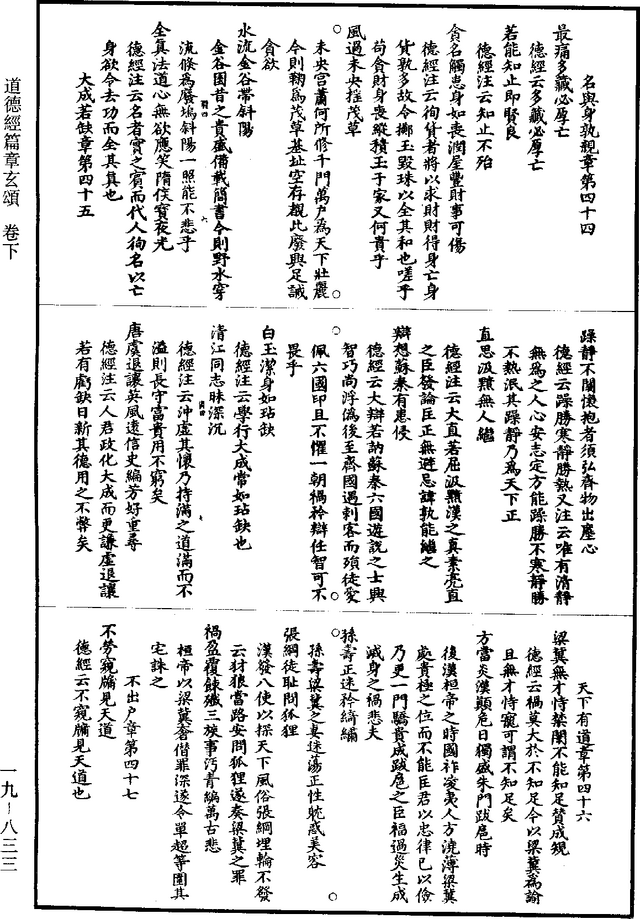 名與身孰親章第四十四
最痛多藏必厚亡
德經云多藏必厚亡
若能知止即賢良
德經注云知止不殆
貪名觸患身如喪潤屋豐財事可傷
德經注云徇貨者將以求財財得身亡身
貨孰多故令擲玉毀珠以全其和也嗟乎
苟貪財身喪縱積玉于家又何貴乎
風過未央搖茂草
未央宮蕭何所修千門萬户為天下壯麗
今則鞠為茂草基址空存觀此廢興足誡
貪欲
水流金谷帶斜陽
金谷園昔之貴盛備載簡書今則野水穿
流倏為廢塢斜陽一照能不悲乎
全真法道心無欲應笑隋侯寶夜光
德經注云名者實之賓而代人徇名以亡
身欲令去功而全其真也
大成若缺章第四十五
躁靜不關懷抱者須弘齊物出塵心
德經云躁勝寒靜勝熱又注云唯有清靜
無為之人心安志定方能躁勝不寒靜勝
不熱泯其躁靜乃為天下正
直思汲黯無人繼
德經注云大直若屈汲黯漢之真素亮直
之臣發論臣正無避忌諱孰能繼之
辯想蘇秦有患侵
德經云大辯若訥蘇秦六國遊說之士與
智巧尚浮偽後至齊國遇刺客而殞徒愛
佩六國印且不懼一朝禍矜辯任智可不
畏乎
白玉潔身如玷缺
德經注云學行大成常如玷缺也
清江同志昧深沉
德經注云沖虛其懷乃持滿之道滿而不
溢則長守富貴用不窮矣
唐虞退讓英風遠信史編芳好重尋
德經注云人君政化大成而更謙虛退讓
若有虧缺日新其德用之不弊矣
天下有道章第四十六
梁冀無才恃禁閽不能知足質成規
德經云禍莫大於不知足今以梁冀為諭
且無才恃寵可謂不知足矣
方當炎漢顯危日獨盛朱門跋扈時
後漢桓帝之時國祚凌夷人方澆薄梁冀
處貴極之位而不能匡君以忠律己以儉
乃更一門驕貴成跋扈之臣福過災生成
滅身之禍悲夫
孫壽正迷矜綺繡
孫壽梁冀之妻迷蕩正性躭惑美容
張綱徒恥問狐狸
漢發八使以採天下風俗張綱埋輪不發
云豺狼當路安問狐狸遂奏梁冀之罪
禍盈覆餗殲三族事汚青編萬古悲
桓帝以梁冀奢僭罪深遂令單超等圍其
宅誅之
不出户章第四十七
不勞窺牖見天道
德經云不窺牖見天道也
道德經篇章玄頌　卷下
一九—八三三